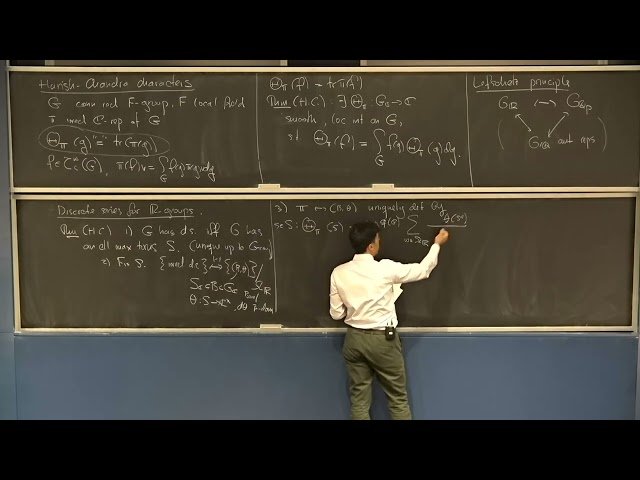 Harish-Chandra characters
G conn red F-group, F local field
π irred ℂ-rep of G
Θ_π(g) "=" tr(π(g))
f ∈ C_c^∞(G), π(f)v = ∫_G f(g)π(g)v dg
Θ_π(f) = tr π(f)
Thm (H.C.): ∃ Θ_π : G_rs → ℂ
smooth, loc int on G,
st Θ_π(f) = ∫_G f(g) Θ_π(g) dg.
Lefschetz principle
G_ℝ ↔ G_ℚp
G_ℚ aut reps
Discrete series for ℝ-groups.
Thm (H.C.) 1) G has ds. iff G has
an ell max torus S. (unique up to G-conj)
2) Fix S. {irred ds} ↔ {(B,θ)}/
S_ℂ ⊂ B ⊂ G_ℂ
θ : S → ℂ^x, dθ B-dom
3) π ↔ (B,θ) uniquely det by
s∈S : Θ_π(s) = (-1)^q(G) Σ θ(s^w)